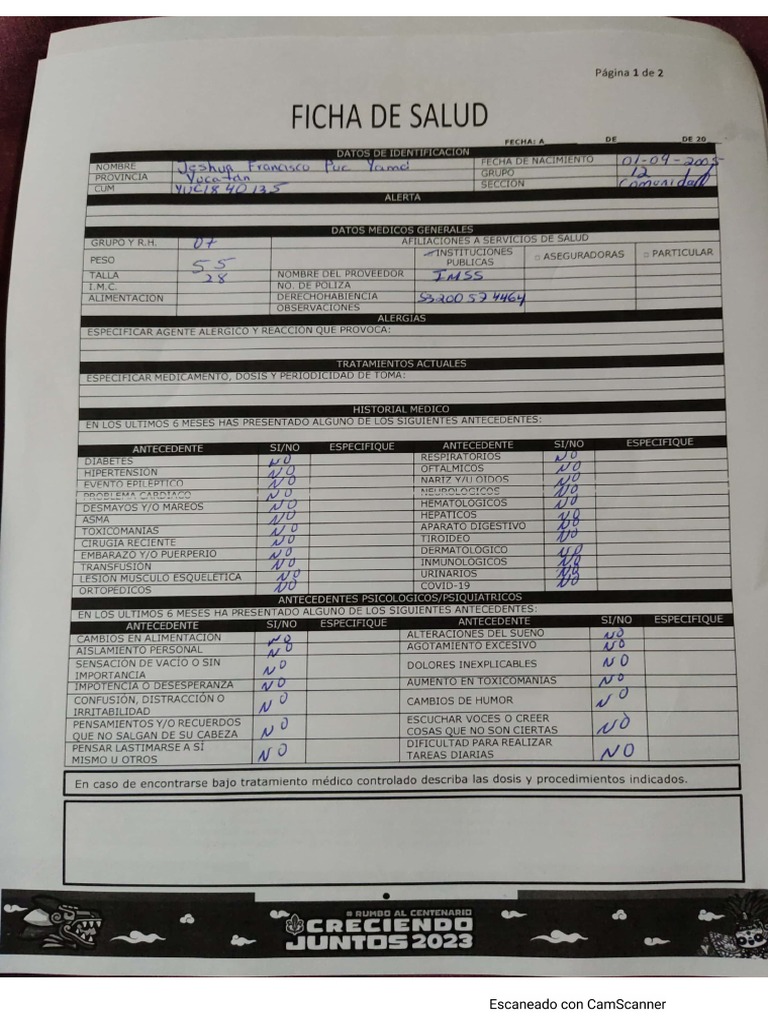 Página 1 de 2
FICHA DE SALUD
FECHA: A DE DE 20
DATOS DE IDENTIFICACION
NOMBRE Jeshua Francisco Puc Yama FECHA DE NACIMIENTO 01-04-2005
PROVINCIA Yucatan GRUPO 12
CUM YUC1840135 SECCION Comunidad
ALERTA
DATOS MEDICOS GENERALES
GRUPO Y R.H. O+ AFILIACIONES A SERVICIOS DE SALUD
PESO 55 INSTITUCIONES PUBLICAS ASEGURADORAS PARTICULAR
TALLA 28 NOMBRE DEL PROVEEDOR IMSS
I.M.C. NO. DE POLIZA
ALIMENTACION DERECHOHABIENCIA 53200574464
OBSERVACIONES
ALERGIAS
ESPECIFICAR AGENTE ALERGICO Y REACCION QUE PROVOCA:
TRATAMIENTOS ACTUALES
ESPECIFICAR MEDICAMENTO, DOSIS Y PERIODICIDAD DE TOMA:
HISTORIAL MEDICO
EN LOS ULTIMOS 6 MESES HAS PRESENTADO ALGUNO DE LOS SIGUIENTES ANTECEDENTES:
ANTECEDENTE SI/NO ESPECIFIQUE ANTECEDENTE SI/NO ESPECIFIQUE
DIABETES NO RESPIRATORIOS NO
HIPERTENSION NO OFTALMICOS NO
EVENTO EPILEPTICO NO NARIZ Y/U OIDOS NO
PROBLEMA CARDIACO NO NEUROLOGICOS NO
DESMAYOS Y/O MAREOS NO HEMATOLOGICOS NO
ASMA NO HEPATICOS NO
TOXICOMANIAS NO APARATO DIGESTIVO NO
CIRUGIA RECIENTE NO TIROIDEO NO
EMBARAZO Y/O PUERPERIO NO DERMATOLOGICO NO
TRANSFUSION NO INMUNOLOGICOS NO
LESION MUSCULO ESQUELETICA NO URINARIOS NO
ORTOPEDICOS NO COVID-19 NO
ANTECEDENTES PSICOLOGICOS/PSIQUIATRICOS
EN LOS ULTIMOS 6 MESES HA PRESENTADO ALGUNO DE LOS SIGUIENTES ANTECEDENTES:
ANTECEDENTE SI/NO ESPECIFIQUE ANTECEDENTE SI/NO ESPECIFIQUE
CAMBIOS EN ALIMENTACION NO ALTERACIONES DEL SUEÑO NO
AISLAMIENTO PERSONAL NO AGOTAMIENTO EXCESIVO NO
SENSACION DE VACIO O SIN IMPORTANCIA NO DOLORES INEXPLICABLES NO
IMPOTENCIA O DESESPERANZA NO AUMENTO EN TOXICOMANIAS NO
CONFUSIÓN, DISTRACCIÓN O IRRITABILIDAD NO CAMBIOS DE HUMOR NO
PENSAMIENTOS Y/O RECUERDOS QUE NO SALGAN DE SU CABEZA NO ESCUCHAR VOCES O CREER COSAS QUE NO SON CIERTAS NO
PENSAR LASTIMARSE A SÍ MISMO U OTROS NO DIFICULTAD PARA REALIZAR TAREAS DIARIAS NO
En caso de encontrarse bajo tratamiento médico controlado describa las dosis y procedimientos indicados.
RUMBO AL CENTENARIO
CRECIENDO
JUNTOS 2023
Escaneado con CamScanner